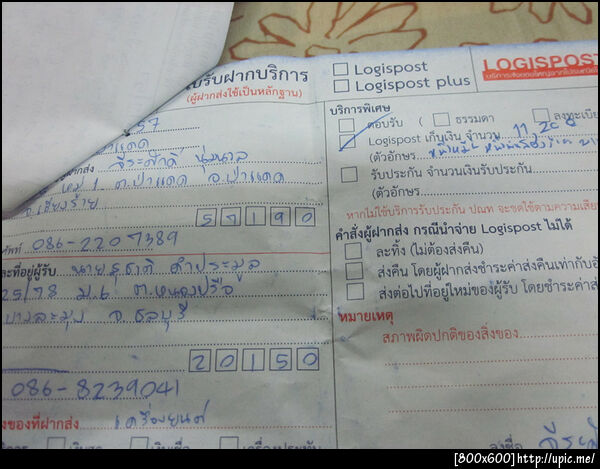 ใบรับฝากบริการ
(ผู้ฝากส่งใช้เป็นหลักฐาน)
Logispost
Logispost plus
LOGISPOST
57
ป่าแดด
จีระศักดิ์ นุ่มนวล
หมู่ 1 ต.ป่าแดด อ.ป่าแดด
จ.เชียงราย
57190
086-2207389
ละที่อยู่ผู้รับ นายสุชาติ คำประมูล
25/78 ม.6 ต.หนองปรือ
บางละมุง จ.ชลบุรี
20150
086-8239041
ของที่ฝากส่ง เครื่องยนต์
บริการพิเศษ
ตอบรับ ( ธรรมดา ลงทะเบีย
Logispost เก็บเงิน จำนวน 11,200
(ตัวอักษร หนึ่งหมื่น หนึ่งพันสองร้อย
รับประกัน จำนวนเงินรับประกัน
(ตัวอักษร
หากไม่ใช้บริการรับประกัน ปณท จะชดใช้ตามความเสีย
คำสั่งผู้ฝากส่ง กรณีนำจ่าย Logispost ไม่ได้
ละทิ้ง (ไม่ต้องส่งคืน)
ส่งคืน โดยผู้ฝากส่งชำระค่าส่งคืนเท่ากับอั
ส่งต่อไปที่อยู่ใหม่ของผู้รับ โดยชำระค่าส่
หมายเหตุ
สภาพผิดปกติของสิ่งของ
ลงชื่อ จีระศั
[800x600]http://upic.me/